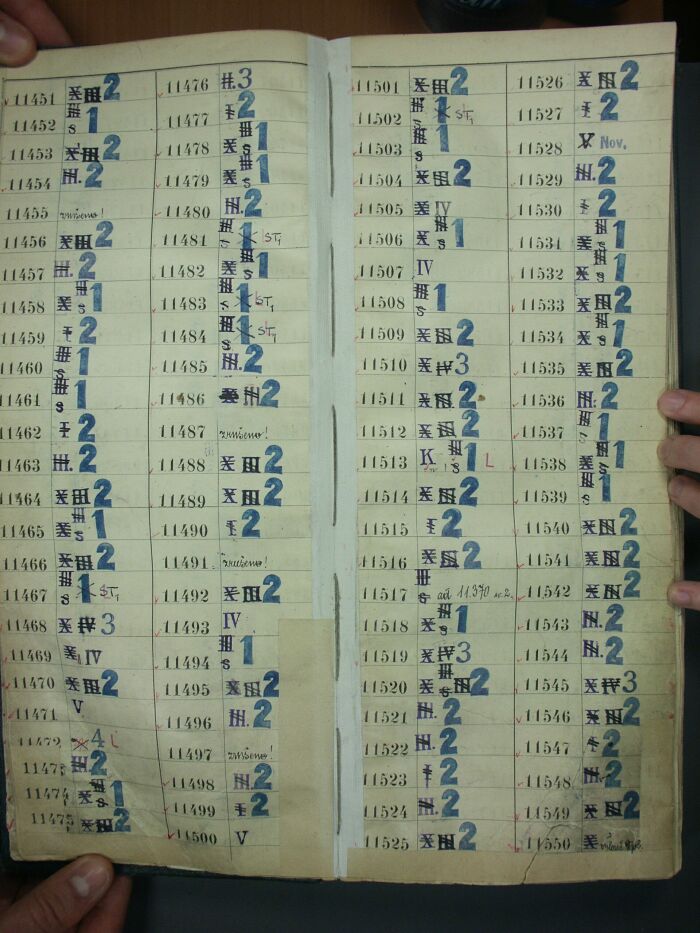 11451 X III 2
11452 III s 1
11453 X III 2
11454 III. 2
11455 zrušeno!
11456 X III 2
11457 III. 2
11458 X s 1
11459 I 2
11460 III s 1
11461 III s 1
11462 I 2
11463 III. 2
11464 X III 2
11465 X III s 1
11466 X III 2
11467 III s 1 X ST1
11468 X IV 3
11469 X IV
11470 X III 2
11471 V
11472 X 4 L
11473 III 2
11474 X III s 1
11475 X III 2
11476 II. 3
11477 I 2
11478 X III s 1
11479 X III s 1
11480 III. 2
11481 III s 1 X ST1
11482 X III s 1
11483 III s 1 X ST1
11484 III s 1 X ST1
11485 III. 2
11486 X III 2
11487 zrušeno!
11488 X III 2
11489 X III 2
11490 I 2
11491 zrušeno!
11492 X III 2
11493 IV
11494 III s 1
11495 X III 2
11496 III. 2
11497 zrušeno!
11498 III. 2
11499 I 2
11500 V
11501 X III 2
11502 III s 1 X ST1
11503 III s 1
11504 X III 2
11505 X IV
11506 X III s 1
11507 IV
11508 III s 1
11509 X III 2
11510 X IV 3
11511 X III. 2
11512 X III 2
11513 K III s 1 L
11514 X III 2
11515 I 2
11516 X III 2
11517 III s ad 11.370
11518 X III s 1
11519 X IV 3
11520 X III s III 2
11521 III. 2
11522 III. 2
11523 I 2
11524 III. 2
11525 X III 2
11526 X III 2
11527 I 2
11528 V Nov.
11529 III. 2
11530 I 2
11531 X III s 1
11532 X III s 1
11533 X III 2
11534 X III s 1
11535 X III 2
11536 III. 2
11537 III s 1
11538 X III s 1
11539 III s 1
11540 X III 2
11541 X III 2
11542 X III 2
11543 III. 2
11544 III. 2
11545 X IV 3
11546 X III 2
11547 I 2
11548 III. 2
11549 X III 2
11550 X